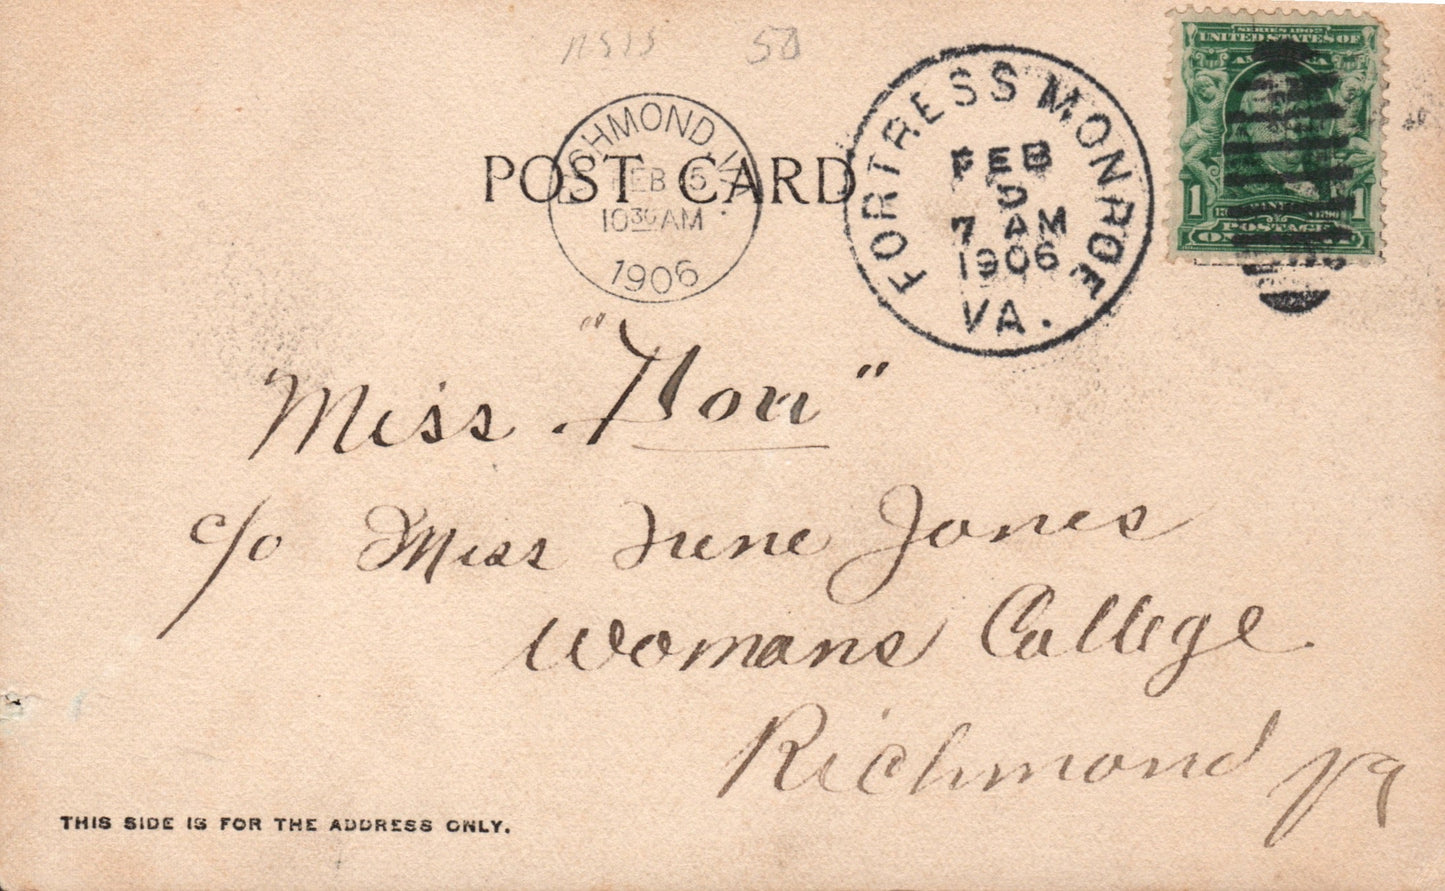 50
SERIES 1902
UNITED STATES OF
AMERICA
1 1
POSTAGE
FORTRESS MONROE
FEB
5
7 AM
1906
VA.
RICHMOND, VA.
FEB 5
10 30 AM
1906
POST CARD
Miss "Non"
c/o Miss Irene Jones
Womans College
Richmond Va
THIS SIDE IS FOR THE ADDRESS ONLY.